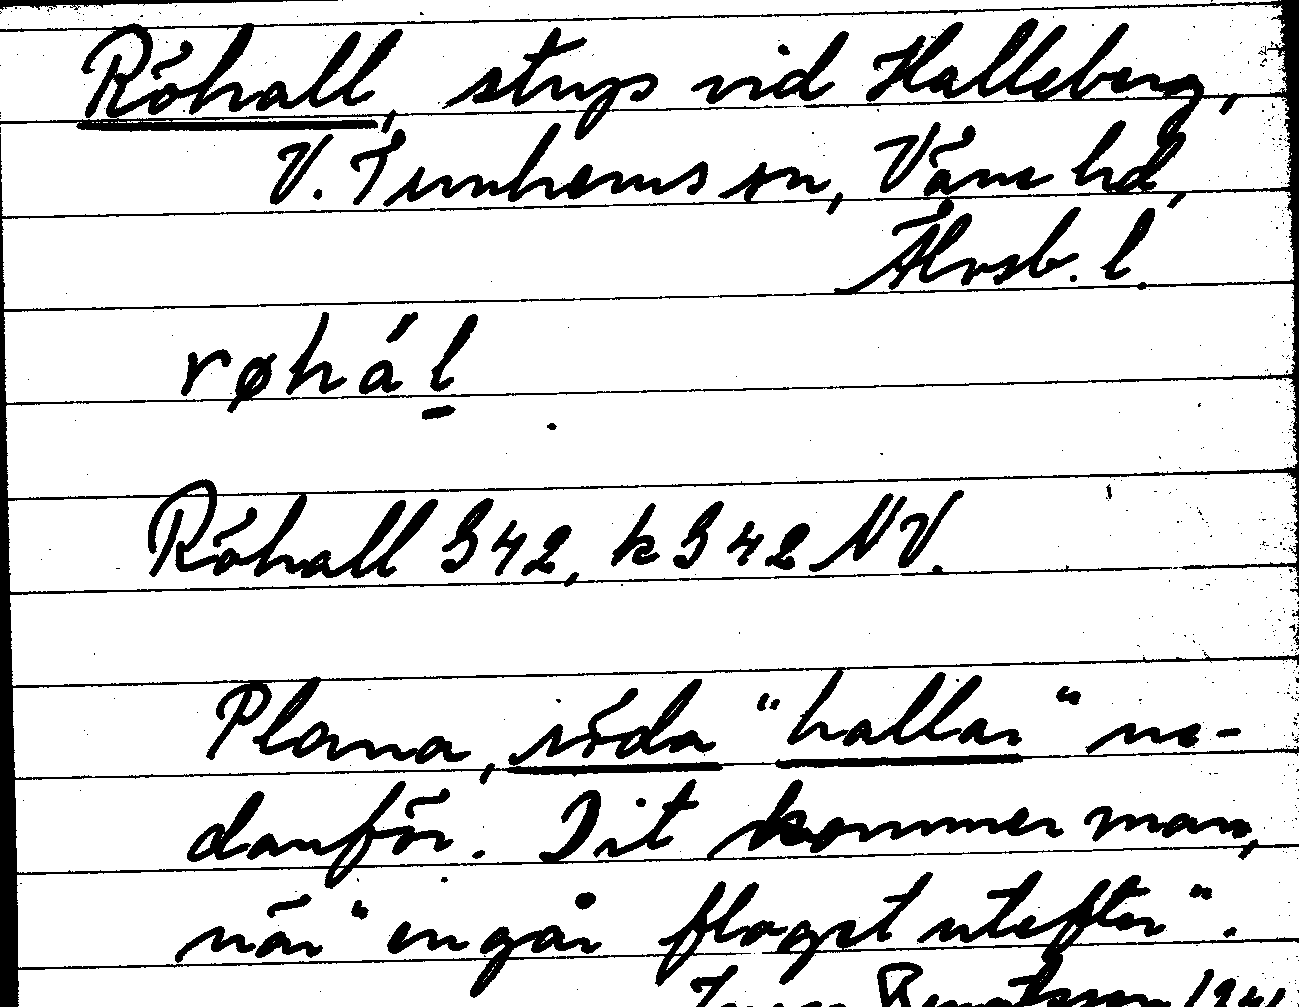 Röhall, stup vid Halleberg,
V. Tunhems sn, Väne hd,
Älvsb. l.
røhál̠
Röhall S42, k S42 NV.
Plana, röda "hallar" ne-
danför. Dit kommer man,
när "en går flaget utefter".